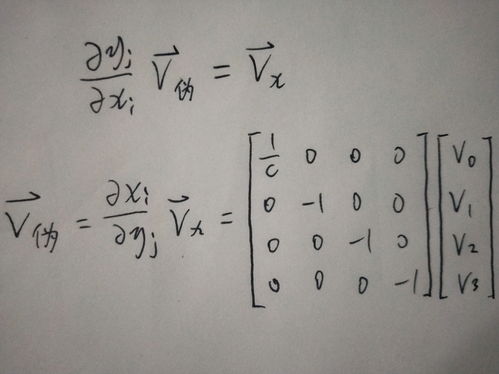 ∂y_j/∂x_i V⃗_伪 = V⃗_x
V⃗_伪 = ∂x_i/∂y_j V⃗_x = [1/c 0 0 0; 0 -1 0 0; 0 0 -1 0; 0 0 0 -1] [V_0; V_1; V_2; V_3]